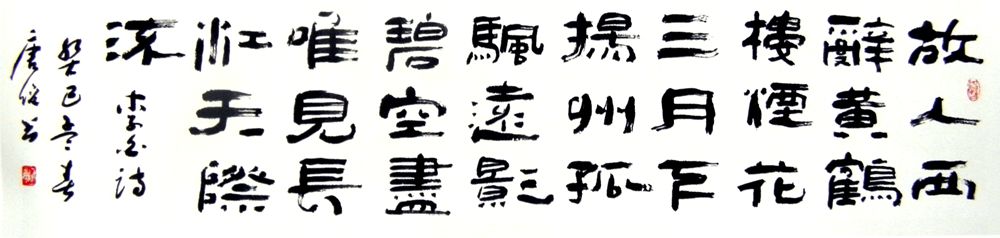 故人西
辭黃鶴
樓煙花
三月下
揚州孤
颿遠影
碧空盡
唯見長
江天際
流 李白詩
癸巳春
唐书